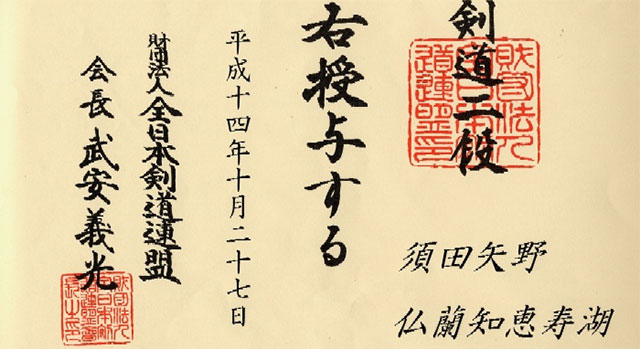 剣道二段
須田矢野
仏蘭知恵寿湖
右授与する
平成十四年十月二十七日
財団法人全日本剣道連盟
会長武安義光